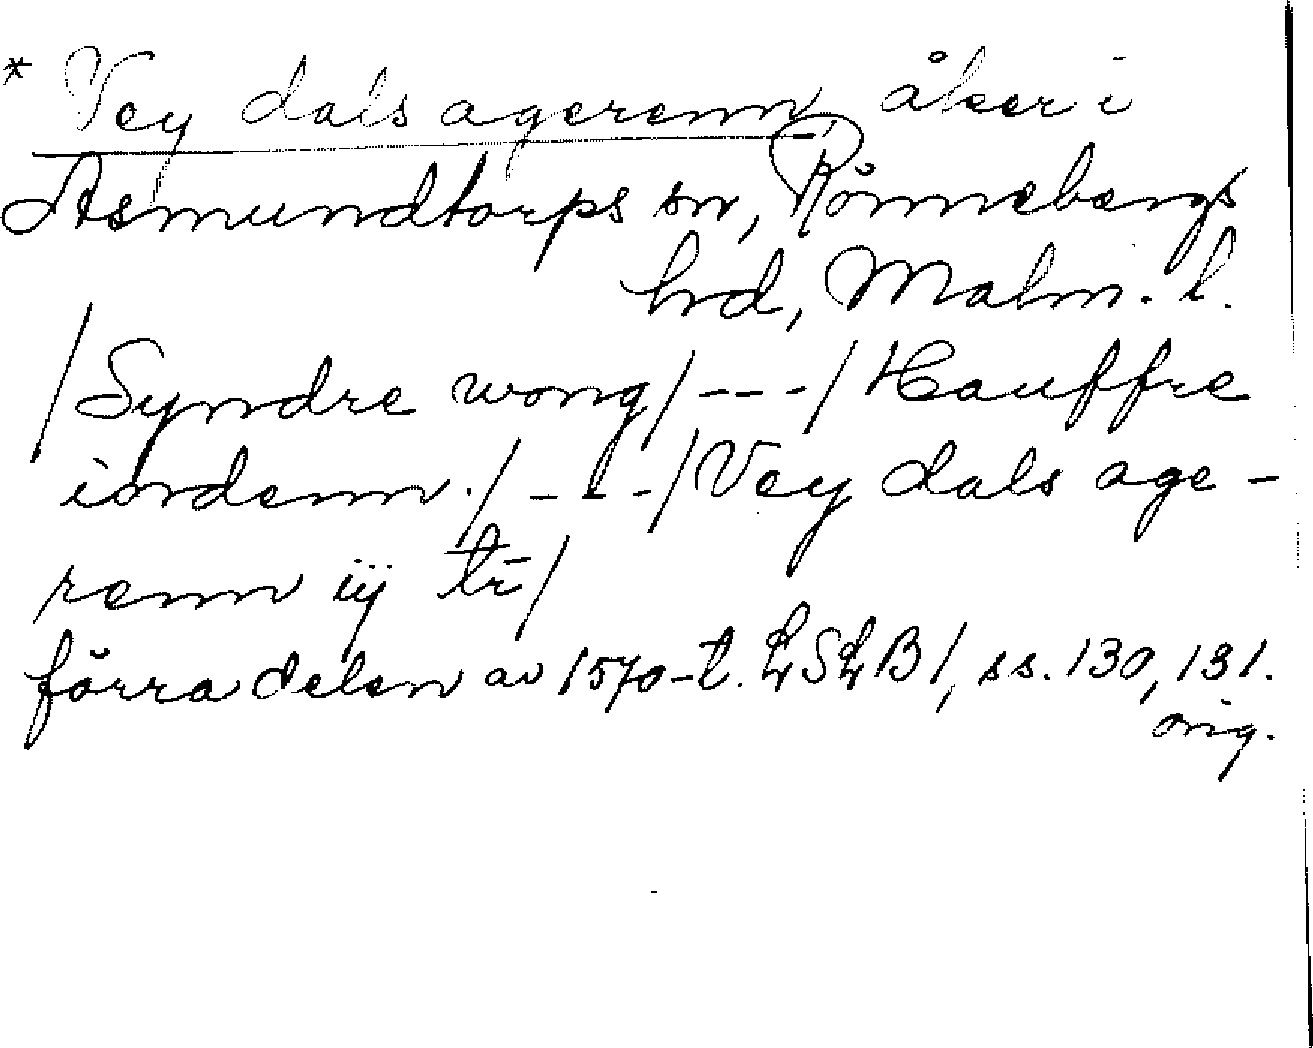 * Vey dals agerenn, åker i
Asmundtorps sn, Rönnebergs
hd, Malm. l.
/Syndre wong/---/Hauffre
iordenn./---/Vey dals age-
renn iij tr̄/
förra delen av 1570-t. LSLB1, ss. 130, 131.
orig.